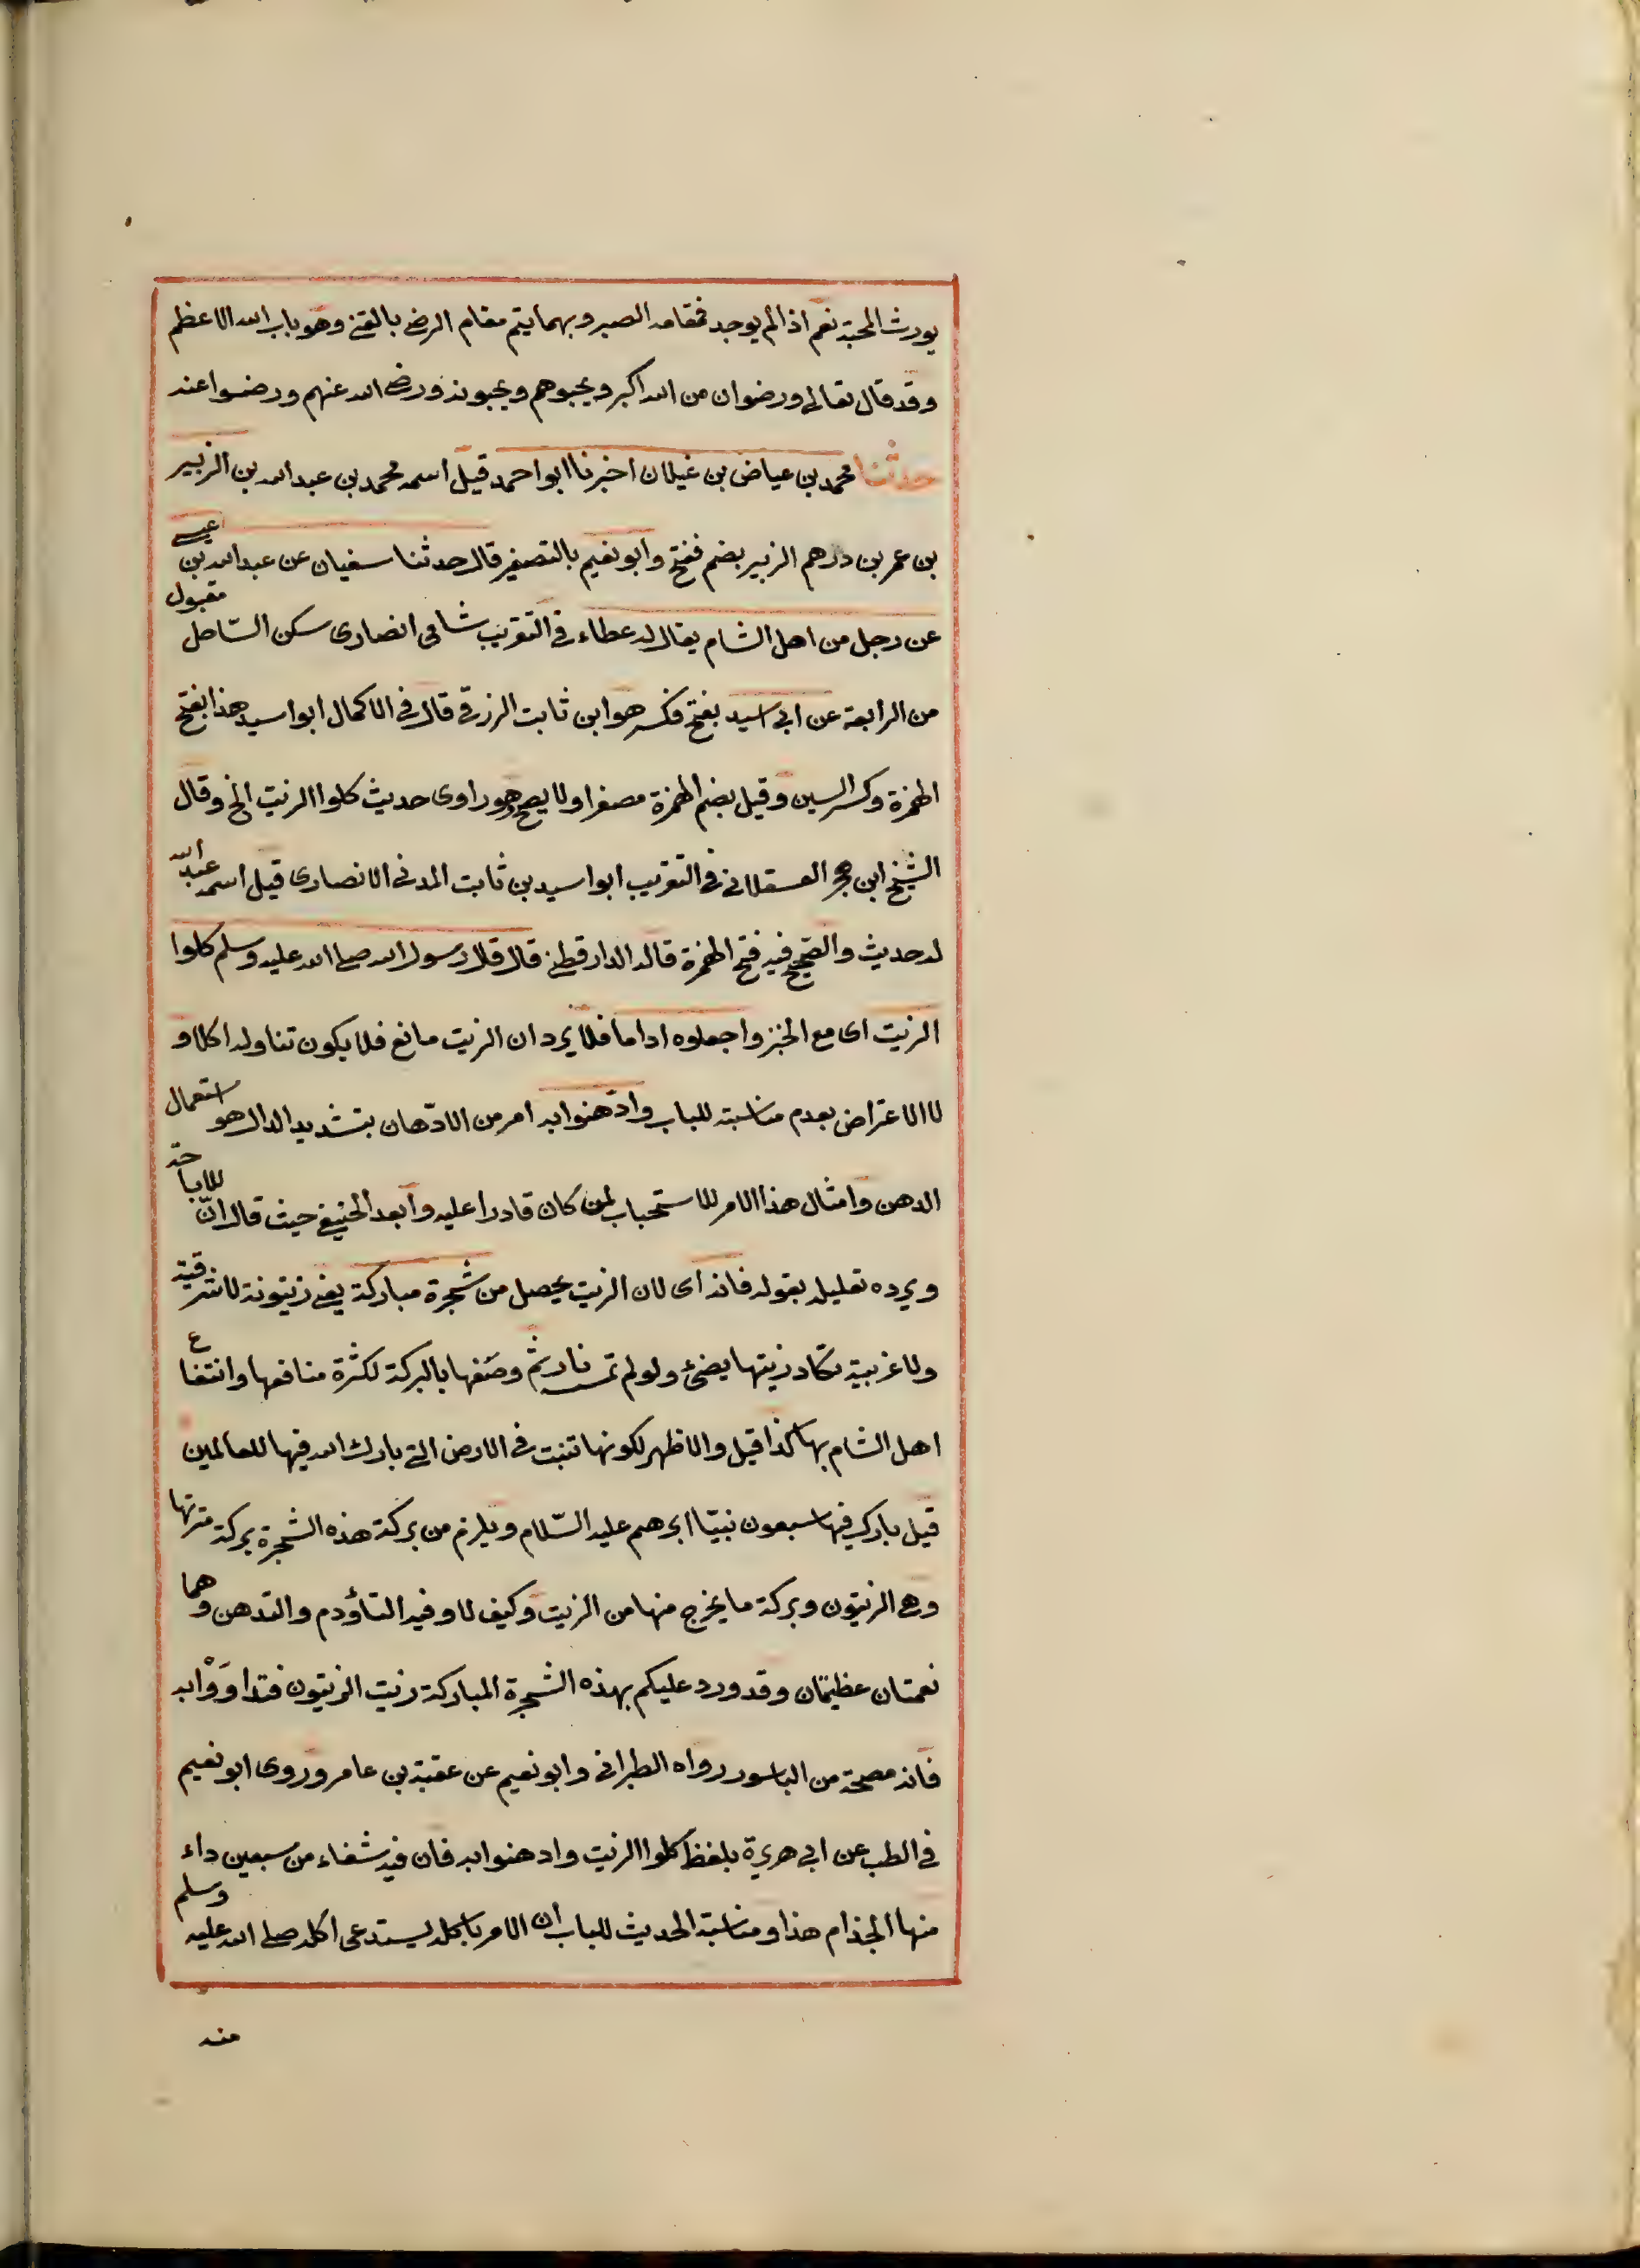 يورث المحبة نعم اذا لم يوجد فمقامه الصبر وبهما يتم مقام الرضى بالقضى وهو باب الله الاعظم
وقد قال تعالى ورضوان من الله اكبر ويحبوهم ويحبونه ورضى الله عنهم ورضوا عنه
حدثنا محمد بن عياض بن غيلان اخبرنا ابو احمد قيل اسمه محمد بن عبد الله بن الزبير
بن عمر بن درهم الزبير بضم ففتح وابو نعيم بالتصغير قال حدثنا سفيان عن عبد الله بن عيسى
عن رجل من اهل الشام يقال له عطاء فى التقريب شامى انصارى سكن الساحل مقبول
من الرابعة عن ابى اسيد بفتح فكسر هو ابن ثابت الزرقى قال فى الاكمال ابو اسيد هذا بفتح
الهمزة وكسر السين وقيل بضم الهمزة مصغرا ولا يصح وهو راوى حديث كلوا الزيت الخ وقال
الشيخ ابن حجر العسقلانى فى التقريب ابو اسيد بن ثابت المدنى الانصارى قيل اسمه عبد الله
له حديث والصحيح فيه فتح الهمزة قاله الدارقطنى قال قال رسول الله صلى الله عليه وسلم كلوا
الزيت اى مع الخبز واجعلوه اداما فلا يرد ان الزيت مائع فلا يكون تناوله اكلا و
لا الاعتراض بعدم مناسبته للباب وادّهنوا به امر من الادّهان بتشديد الدال هو استعمال
الدهن وامثال هذا الامر للاستحباب لمن كان قادرا عليه وابعد الحنيفى حيث قال انّ للاباحة
ويرده تعليله بقوله فانه اى لان الزيت يحصل من شجرة مباركة يعنى زيتونة لا شرقية
ولا غربية تكاد زيتها يضئ ولو لم تمسه نار ثم وصفها بالبركة لكثرة منافعها وانتفاع
اهل الشام بها كذا قيل والاظهر لكونها تنبت فى الارض التى بارك الله فيها للعالمين
قيل بارك فيها سبعون نبيّا ابرهيم عليه السّلام ويلزم من بركة هذه الشجرة بركة ثمرتها
وهى الزيتون وبركة ما يخرج منها من الزيت وكيف لا وفيه التأدم والتدهن وهما
نعمتان عظيمتان وقد ورد عليكم بهذه الشجرة المباركة زيت الزيتون فتداوَوْا به
فانه مصحة من الباسور رواه الطبرانى وابو نعيم عن عقبة بن عامر وروى ابو نعيم
فى الطب عن ابى هريرة بلفظ كلوا الزيت وادهنوا به فان فيه شفاء من سبعين داء
منها الجذام هذا ومناسبة الحديث للباب ان الامر باكله يستدعى اكله صلى الله عليه وسلم
منه